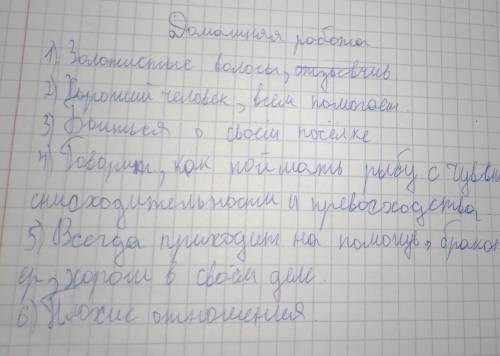 Домашняя работа
1) Золотистые волосы, отзывчив
2) Хороший человек, всем помогает.
3) Боиться о своём посёлке
4) Говорил, как поймать рыбу с чуввн
снисходительности и превосходства
5) Всегда приходит на помощь, бракон
ер, хорош в своём деле.
6) Плохие отношения.